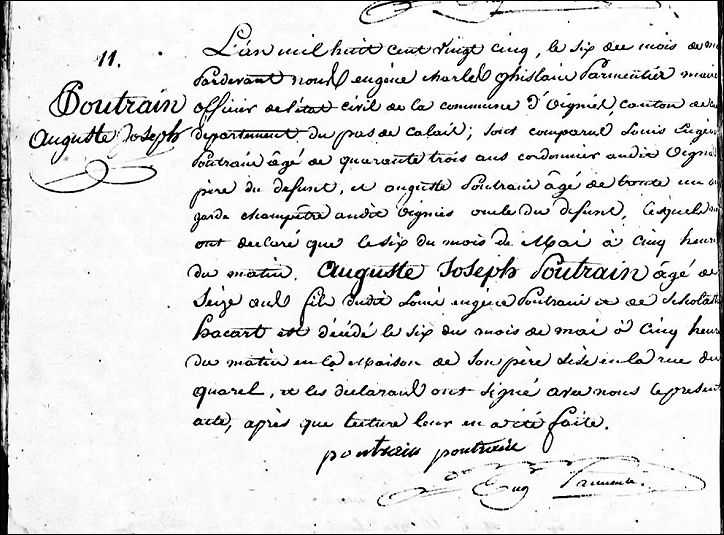 11.
Poutrain
Auguste Joseph
L'an mil huit cent vingt cinq, le six du mois de m
Pardevant nous eugène charles ghislain Parmentier maire
officier de l'état civil de la commune d'oignies, canton de
département du pas de calais; sont comparus Louis Eugène
Poutrain âgé de quarante trois ans cordonnier audit oignie
père du defunt, et auguste Poutrain âgé de trente un
garde champêtre audit oignies oncle du defunt, lesquels
ont declaré que le six du mois de Mai à cinq heur
du matin. Auguste Joseph Poutrain âgé de
seize ans fils dudit Louis eugène Poutrain et de scholast
hacart est décédé le six du mois de mai à cinq heur
du matin en la Maison de son père sise en la rue du
quarel, et les declarans ont signé avec nous le present
acte, après que lecture leur en a été faite.
poutrain poutrain
Eug Parmentier